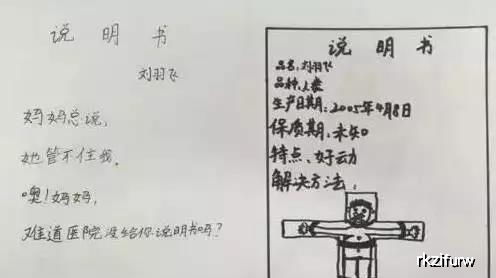 说明书
刘羽飞
妈妈总说，
她管不住我。
噢！妈妈，
难道医院没给你说明书吗？
说明书
品名：刘羽飞
品种：人类
生产日期：2005年4月8日
保质期：未知
特点：好动
解决方法：
rkzifurw